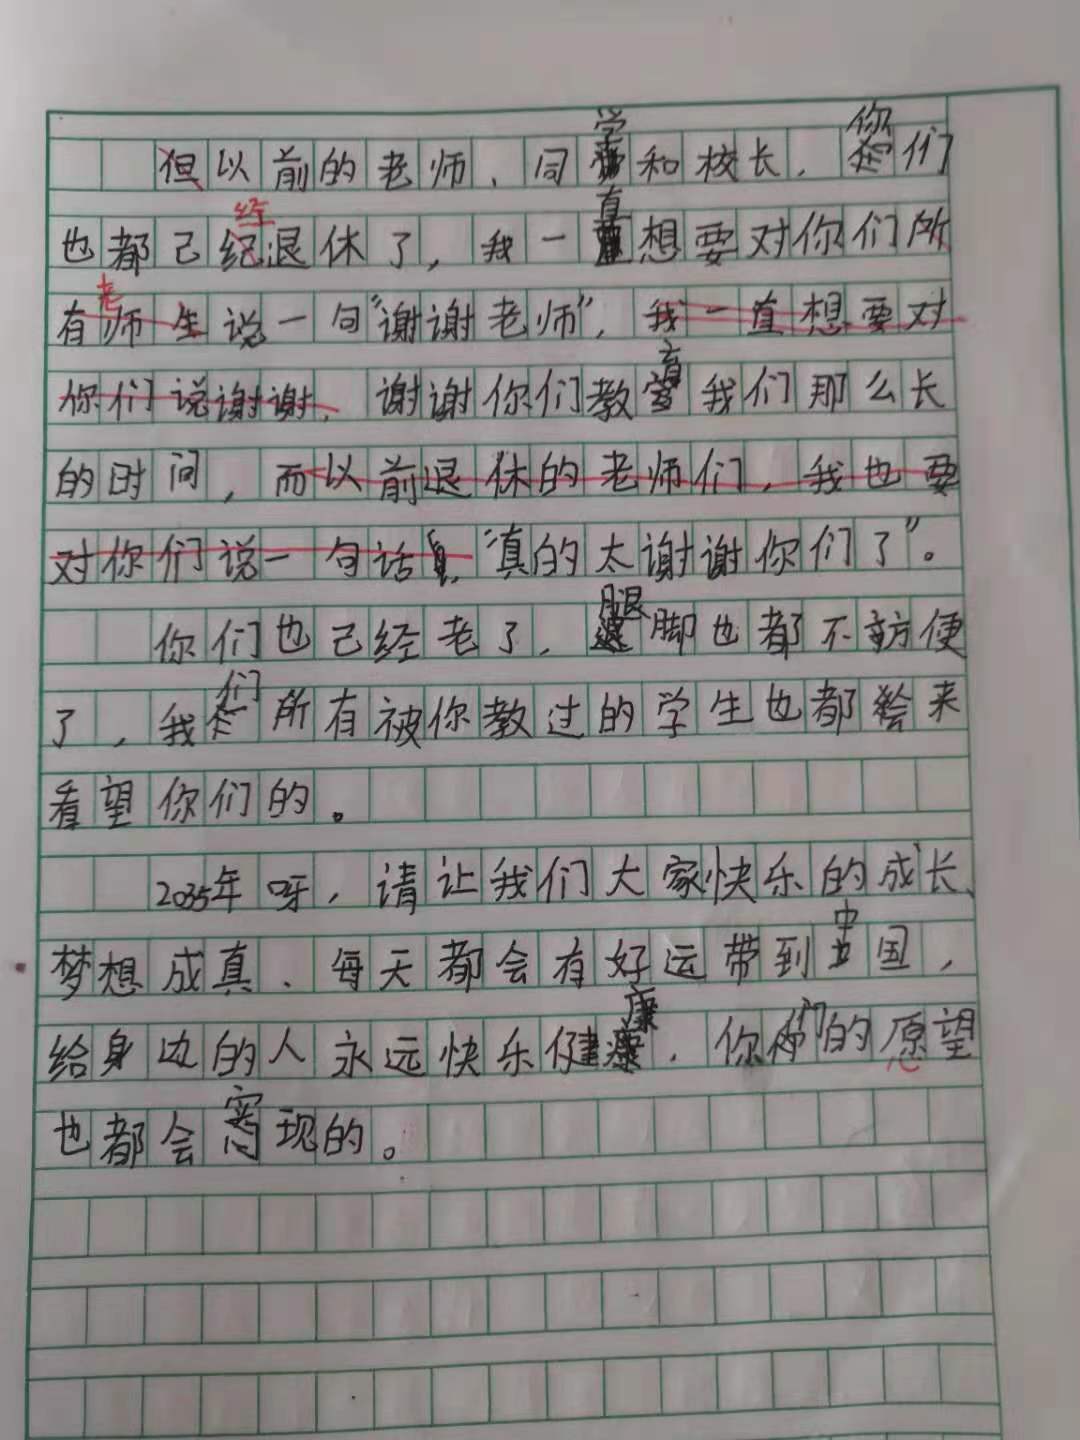 但以前的老师、同学和校长，你们
也都已经退休了，我一直想要对你们所
有老师生说一句“谢谢老师”，我一直想要对
你们说谢谢，谢谢你们教育我们那么长
的时间，而以前退休的老师们，我也要
对你们说一句话，“真的太谢谢你们了”。
你们也已经老了，腿脚也都不方便
了，我们所有被你教过的学生也都会来
看望你们的。
2035年呀，请让我们大家快乐的成长、
梦想成真、每天都会有好运带到中国，
给身边的人永远快乐健康，你们的愿望
也都会实现的。